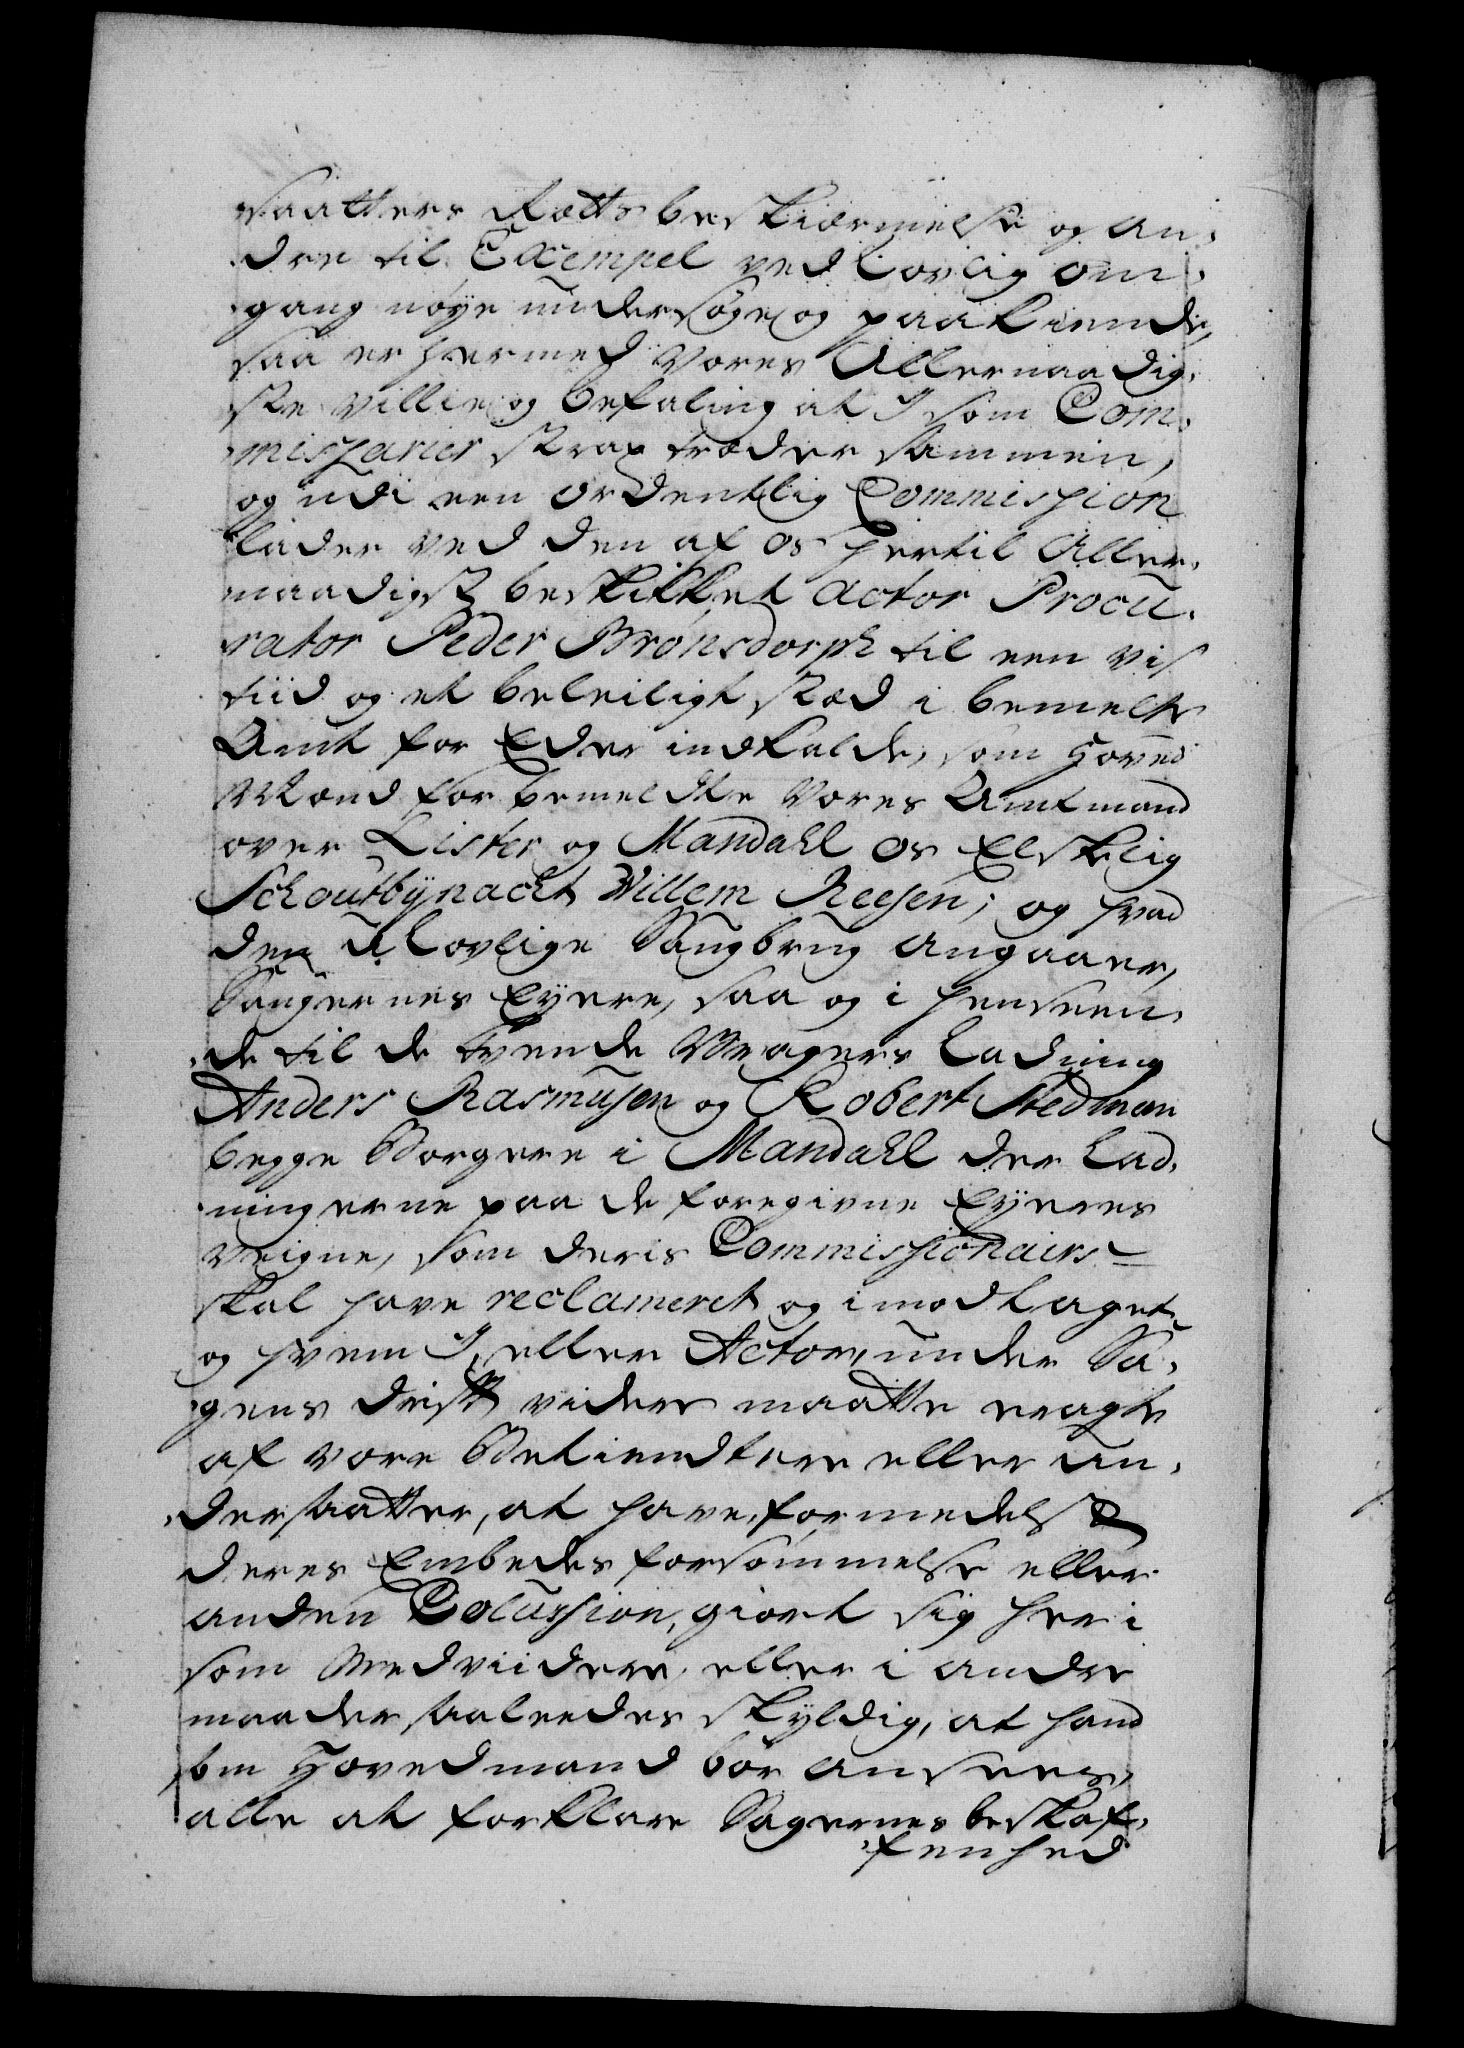 saatters Retts beskiærmelse og an-
dre til Exempel ved Lovlig om-
gang nøye undersøge og paakiende,
saa er hermed Vores Allernaadig-
ste villie og befaling at I som Com-
missarier strax træder sammen,
og udi een ordentlig Commission
lader ved den af os hertil Aller-
naadigst beskikket Actor Procu-
rator Peder Brønsdorph til een vis
tiid og et beleiligt stæd i bemelte
Amt for Eder indkalde, som Hoved
Mand for bemeldte Vores Amtmand
over Lister og Mandahl os Elskelig
Schoutbynacht Willem Reesen; og hvad
den Ulovlige Saugbrug angaaer,
Saugernes Eyere, saa og i henseen-
de til de tvende Vragers Ladning
Anders Rasmusen og Robert Stedman
begge Borgere i Mandahl der Lad-
ningerne paa de foregivne Eyeres
veigne, som deris Commissionairs
skal have reclameret og imodtaget
og hvem I, eller Actor, under Sa-
gens drift videre maatte eragte
af vore Betiendtere eller Un-
dersaatter, at have, formedelst
deres Embedes forsømmelse eller
anden Colussion, giort sig heri
som Medviidere, eller i andre
maader saaleedes skyldig, at hand
som Hovedmand bør ansees,
alle at forklare Sagernes beskaf-
fenhed